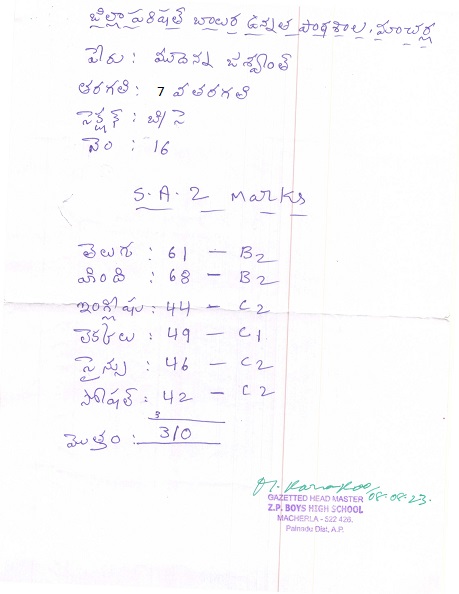 జిల్లా పరిషత్ బాలుర ఉన్నత పాఠశాల, మాచర్ల
పేరు : మూడెనన్న జశ్వంత్
తరగతి : 7 వ తరగతి
సెక్షన్ : బి/సె
నెం : 16
S.A-2 Marks
తెలుగు : 61 — B2
హింది : 68 — B2
ఇంగ్లీషు : 44 — C2
లెక్కలు : 49 — C1
సైన్సు : 46 — C2
సోషల్ : 42 — C2
3
మొత్తం : 310
08-08-23
GAZETTED HEAD MASTER
Z.P. BOYS HIGH SCHOOL
MACHERLA - 522 426.
Palnadu Dist, A.P.